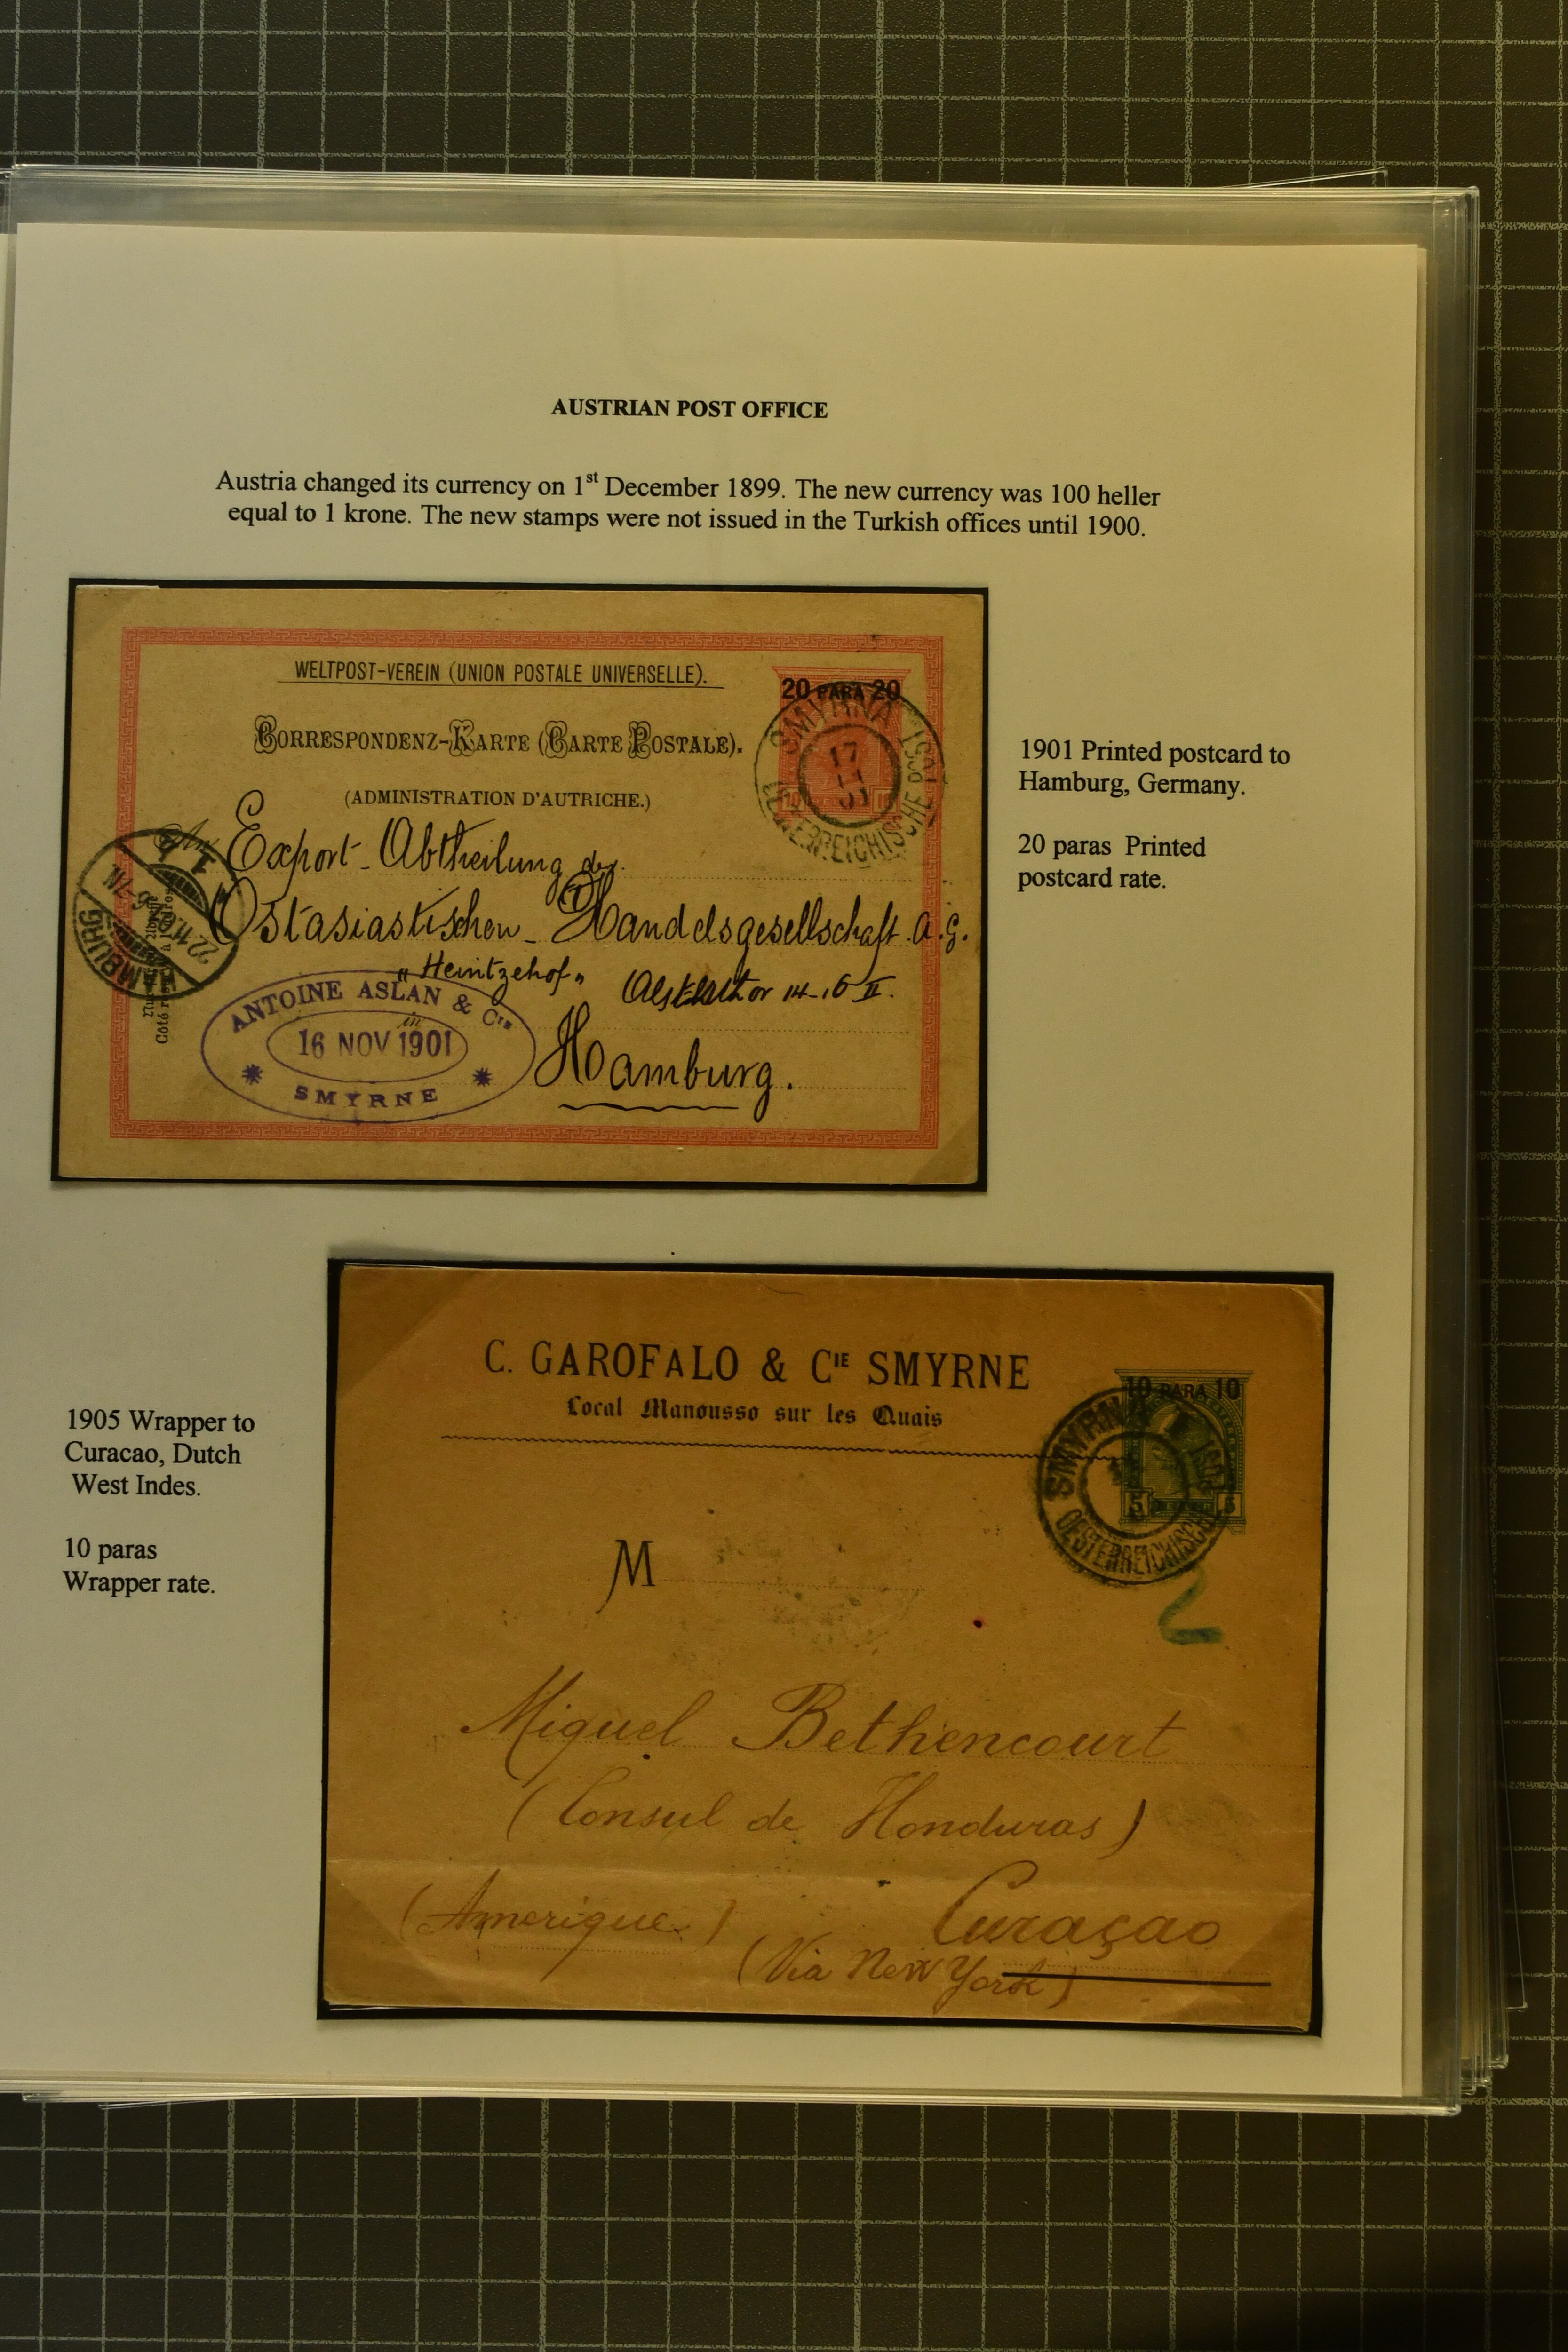 AUSTRIAN POST OFFICE
Austria changed its currency on 1st December 1899. The new currency was 100 heller
equal to 1 krone. The new stamps were not issued in the Turkish offices until 1900.
WELTPOST-VEREIN (UNION POSTALE UNIVERSELLE).
CORRESPONDENZ-KARTE (CARTE POSTALE).
(ADMINISTRATION D'AUTRICHE.)
20 PARA 20
SMYRNA
17
OESTERREICHISCHE POST
An
Export-Abtheilung der
Ostasiastischen-Handelsgesellschaft A.G.
"Heintzehof"
14-16 II.
in
Hamburg.
HAMBURG
ANTOINE ASLAN & Cie
16 NOV 1901
SMYRNE
1901 Printed postcard to
Hamburg, Germany.
20 paras Printed
postcard rate.
1905 Wrapper to
Curacao, Dutch
West Indes.
10 paras
Wrapper rate.
C. GAROFALO & CIE SMYRNE
Local Manousso sur les Quais
10 PARA 10
5 5
SMYRNA
OESTERREICHISCHE
M
Miguel Bethencourt
(Consul de Honduras)
(Amerique)
Curaçao
(Via New York)